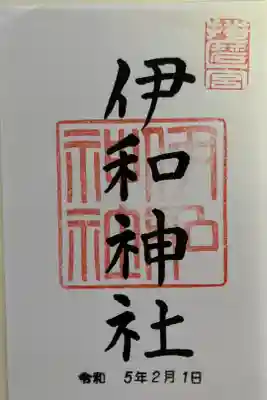 播磨一宮
伊和神社
伊和神社
令和 5年2月1日